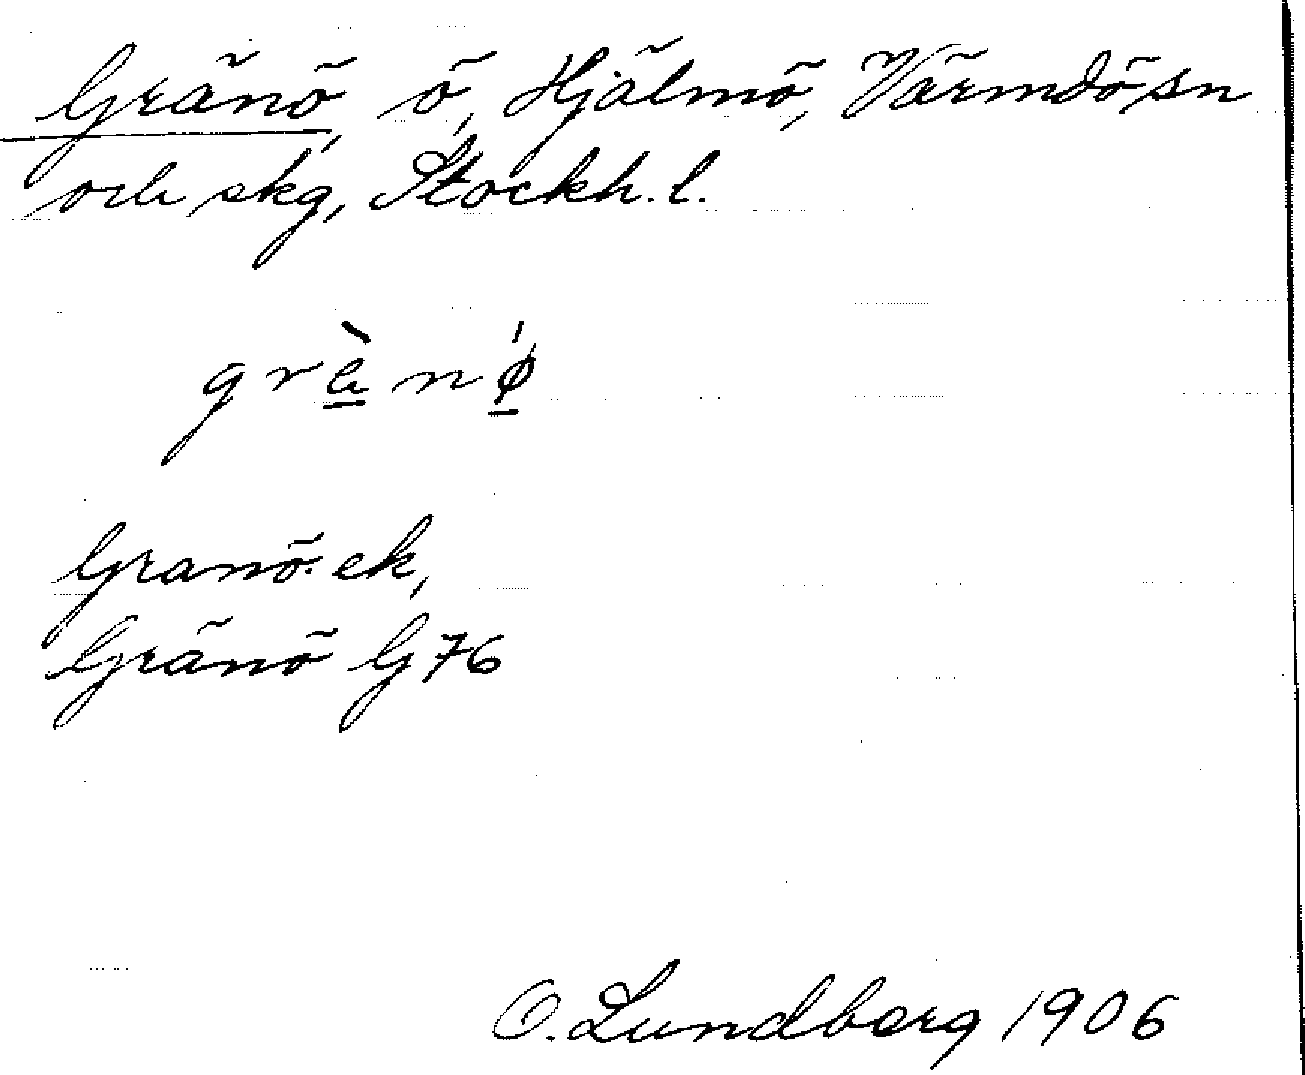 Gränö, ö, Hjälmö, Värmdö sn
och skg, Stockh. l.
grä̀nø̍
Granö. ek,
Gränö G 76
O. Lundberg 1906